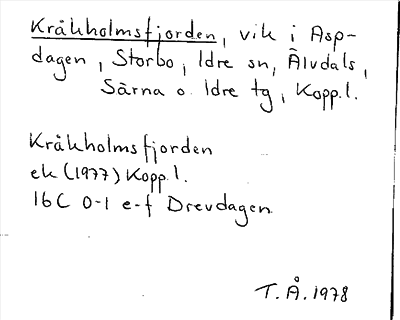 Kråkholmsfjorden, vik i Asp-
dagen, Storbo, Idre sn, Älvdals,
Särna o. Idre tg, Kopp.l.
Kråkholmsfjorden
ek (1977) Kopp.l.
16C 0-1 e-f Drevdagen
T.Å. 1978